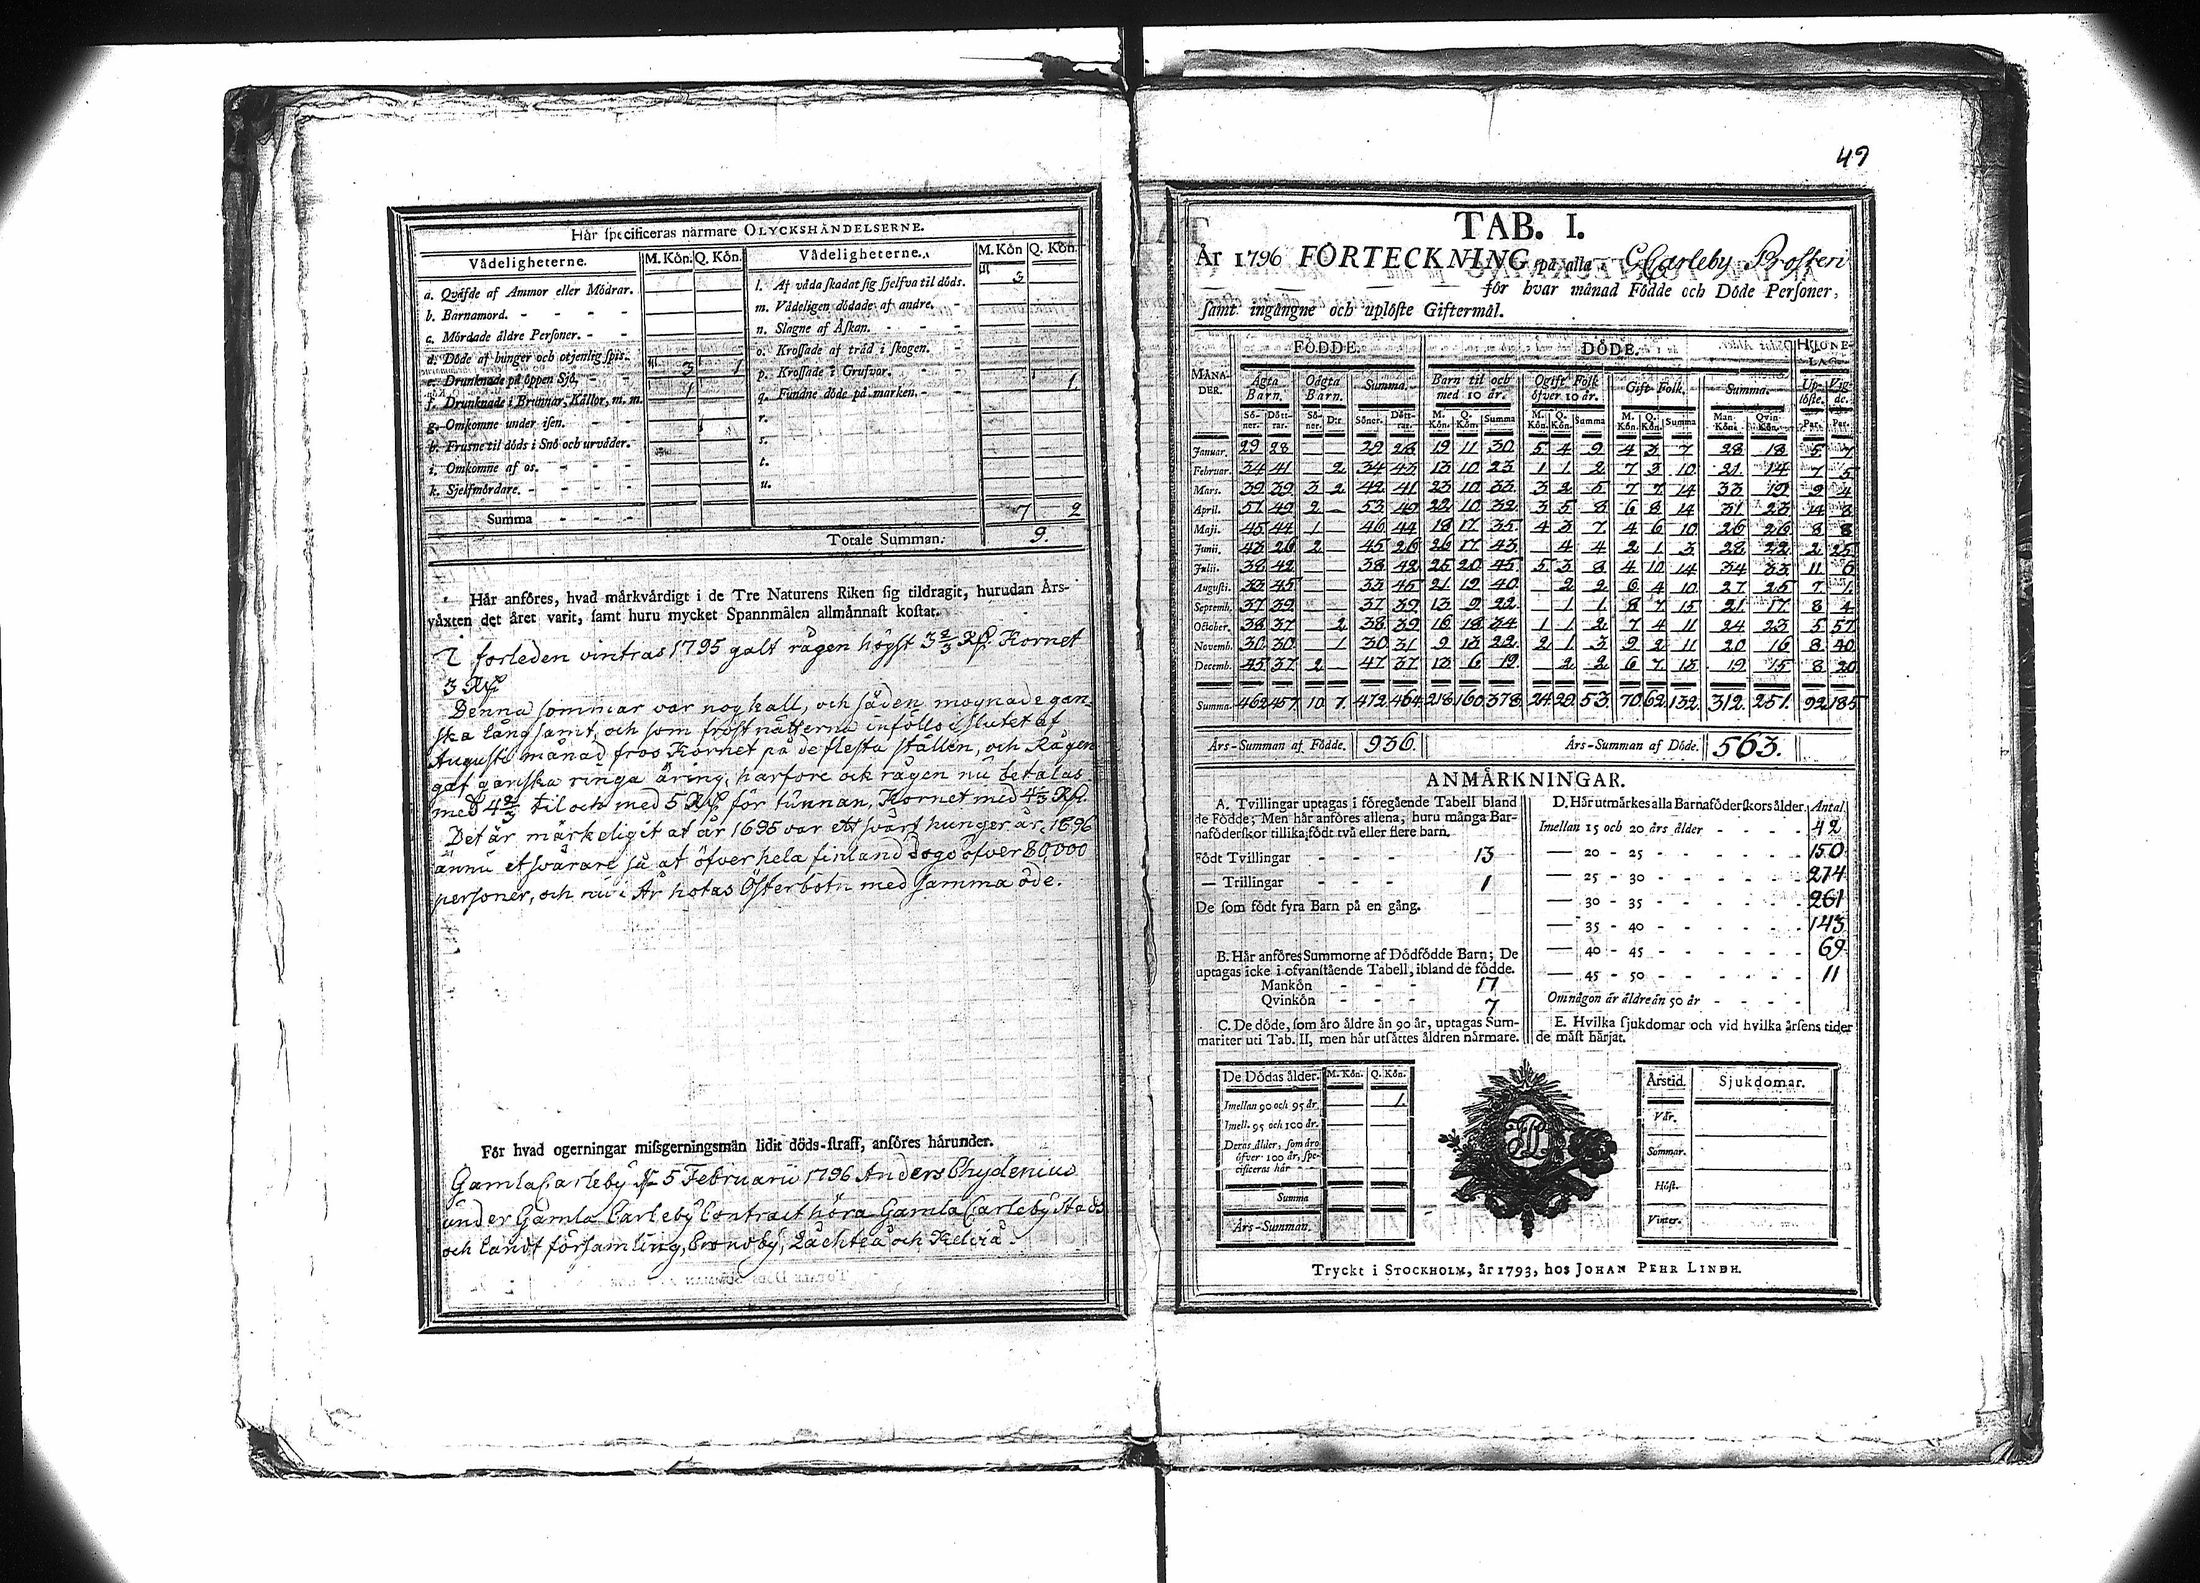 Hår specificeras närmare OLYCKSHÅNDELSERNE.
Vådeligheterne. M. Kön. Q. Kön. Vådeligheterne. M. Kön Q. Kön.
a. Qväfde af Ammor eller Mödrar.
b. Barnamord. - - - -
c. Mördade äldre Personer. - -
d. Döde af hunger och otjenlig spis.
e. Drunknade på öppen Sjö, - - 3 1
f. Drunknade i Brunnar, Källor, m. m. 1
g. Omkomne under isen. - -
h. Frusne til döds i Snö och urväder.
i. Omkomne af os. - - -
k. Sjelfmördare. - - - -
l. Af våda skadat sig sjelfva til döds. 3
m. Vådeligen dödade af andre. -
n. Slagne af Åskan. - - -
o. Krossade af träd i skogen. -
p. Krossade i Grufvor. - - -
q. Fundne döde på marken. - - 1.
r.
s.
t.
u.
Summa - - - 7 2
Totale Summan. 9.
Hår anföres, hvad märkvärdigt i de Tre Naturens Riken sig tildragit, hurudan Års-
växten det året varit, samt huru mycket Spannmålen allmännast kostat.
I forleden vintras 1795 galt rågen högst 3 2/3 Kornet
3
Denna sommar var nog kall, och säden mognade gan-
ska långsamt, och som frostnätterna infölls i slutet af
Augusti månad fros Kornet på de flesta ställen, och Rågen
gaf ganska ringa äring, harfore ock rågen nu betalas
med 4 2/3 til och med 5 för tunnan, Kornet med 4 1/3
Det är märkeligit at år 1695 var ett svårt hunger år, 1696
ännu et svårare så at öfver hela finland dogo öfver 80,000
personer, och nu i År hotas Österbotn med samma öde.
För hvad ogerningar missgerningsmän lidit döds-straff, anföres härunder.
Gamla Carleby 5 Februarii 1796 Anders Chydenius
under Gamla Carleby Contract höra Gamla Carleby Stads
och landt församling, Cronoby, Lachteå och Kelviå.
49
TAB. I.
År 1796 FÖRTECKNING på alla GCarleby Prosteri
för hvar månad Födde och Döde Personer,
samt ingångne och uplöste Giftermål.
FÖDDE. DÖDE. HJONE-LAG.
MÅNADER. Ägta Barn. Oägta Barn. Summa. Barn til och med 10 år. Ogift Folk öfver 10 år. Gift Folk. Summa. Uplöste. Vigde.
Söner. Döttrar. Söner. D:r Söner. Döttrar. M. Kön. Q. Kön. Summa M. Kön. Q. Kön. Summa M. Kön. Q. Kön. Summa Mankön. Qvinkön. Par. Par.
Januar. 29 28 — — 29 28 19 11 30 5 4 9 4 3 7 28 18 5 7
Februar. 34 41 — 2 34 43 13 10 23 1 1 2 7 3 10 21 14 7 5
Mars. 39 39 3 2 42 41 23 10 33 3 2 5 7 7 14 33 19 9 4
April. 51 49 2 — 53 49 22 10 32 3 5 8 6 8 14 31 23 14 8
Maji. 45 44 1 — 46 44 18 17 35 4 3 7 4 6 10 26 26 8 8
Junii. 43 26 2 — 45 26 26 17 43 — 4 4 2 1 3 28 22 2 25
Julii. 38 42 — — 38 42 25 20 45 5 3 8 4 10 14 34 33 11 6
Augusti. 33 45 — — 33 45 21 19 40 — 2 2 6 4 10 27 25 7 1
Septemb. 37 39 — — 37 39 13 9 22 — 1 1 8 7 15 21 17 8 4
October. 38 37 — 2 38 39 16 18 34 1 1 2 7 4 11 24 23 5 57
Novemb. 30 30 — 1 30 31 9 13 22 2 1 3 9 2 11 20 16 8 40
Decemb. 45 37 2 — 47 37 13 6 19 — 2 2 6 7 13 19 15 8 20
Summa. 462 457 10 7. 472 464 218 160 378. 24 29. 53. 70 62 132. 312. 251. 92 185
Års-Summan af Födde. 936. Års-Summan af Döde. 563.
ANMÄRKNINGAR.
A. Tvillingar uptagas i föregående Tabell bland
de Födde; Men här anföres allena, huru många Bar-
naföderskor tillika födt två eller flere barn.
Födt Tvillingar - - - 13
— Trillingar - - - 1
De som födt fyra Barn på en gång.
B. Här anföres Summorne af Dödfödde Barn; De
uptagas icke i ofvanstående Tabell, ibland de födde.
Mankön - - - 17
Qvinkön - - - 7
C. De döde, som äro äldre än 90 år, uptagas Sum-
mariter uti Tab. II, men här utsättes åldren närmare.
D. Här utmärkes alla Barnaföderskors ålder. Antal.
Imellan 15 och 20 års ålder - - - - 42
— 20 - 25 - - - - - - 150
— 25 - 30 - - - - - - 274
— 30 - 35 - - - - - - 261
— 35 - 40 - - - - - - 143
— 40 - 45 - - - - - - 69
— 45 - 50 - - - - - - 11
Om någon är äldre än 50 år - - - -
E. Hvilka sjukdomar och vid hvilka årsens tider
de mäst härjat.
De Dödas ålder. M. Kön. Q. Kön.
Imellan 90 och 95 år. 1.
Imell. 95 och 100 år.
Deras ålder, som äro
öfver 100 år, spe-
cificeras här - -
Summa
Års-Summan.
Årstid. Sjukdomar.
Vår.
Sommar.
Höst.
Vinter.
Tryckt i STOCKHOLM, år 1793, hos JOHAN PEHR LINDH.